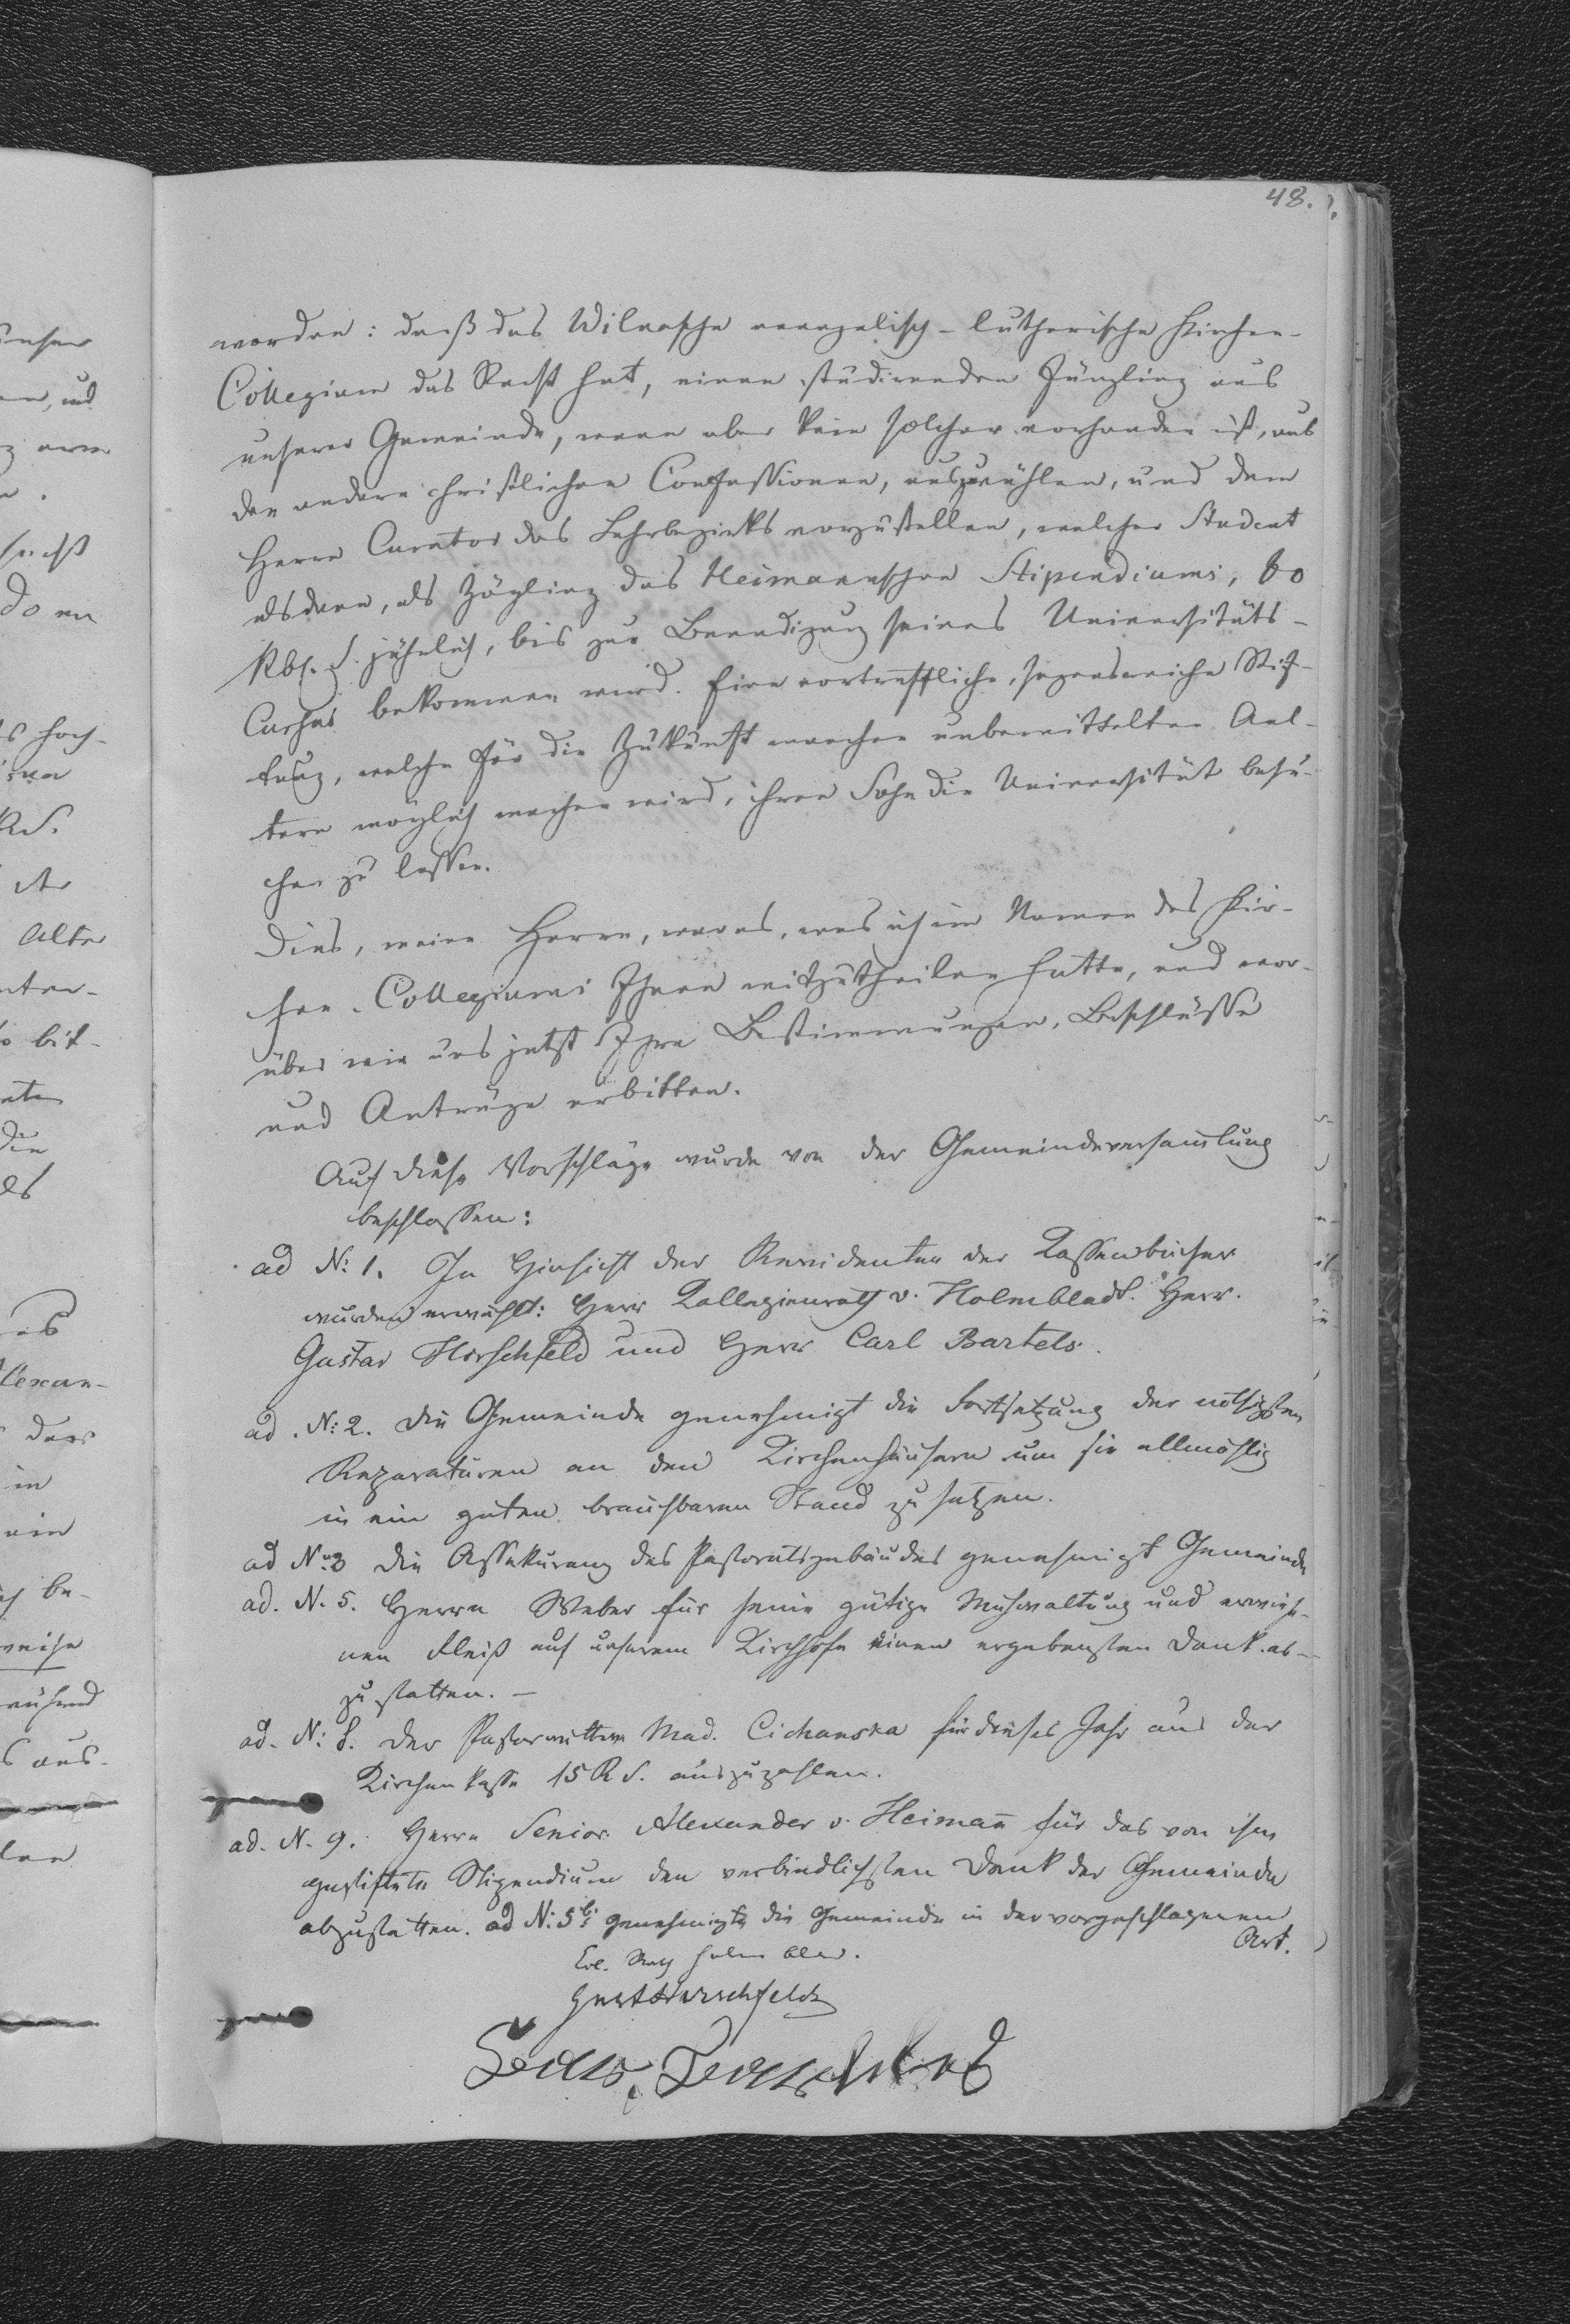 48.
worden: daß das Wilnasche evangelisch-lutherische Kirchen-
Collegium das Recht hat, einen studirenden Jüngling aus
unserer Gemeinde, wenn aber kein solcher vorhanden ist, aus
den andern christlichen Confessionen, auszuwählen, und dem
Herrn Curator des Lehrbezirks vorzustellen, welcher Student
alsdann, als Zögling des Heimannschen Stipendiums, 60
Rbl. S. jährlich, bis zur Beendigung seines Universitäts-
Cursus bekommen wird. Eine vortreffliche, segensreiche Stif-
tung, welche für die Zukunft manchen unbemittelten Ael-
tern möglich machen wird, ihren Sohn die Universität besu-
chen zu lassen.
Dies, meine Herrn, war es, was ich im Namen des Kir-
chen-Collegiums Ihnen mitzutheilen hatte, und wor-
über wir uns jetzt Ihre Bestimmungen, Beschlüsse
und Anträge erbitten.
Auf diese Vorschläge wurde von der Gemeindeversamlung
beschlossen:
ad N: 1. In Hinsicht der Revidenten der Kassenbücher
wurden erwählt: Herr Kollegienrath v. Holmbladt. Herr.
Gustav Hirschfeld und Herr Carl Bartels.
ad. N: 2. die Gemeinde genehmigt die Fortsetzung der nöthigsten
Reparaturen an den Kirchenhäusern um sie allmählig
in ein guten brauchbaren Stand zu setzen.
ad No 3 die Assekuranz des Pastoratsgebäudes genehmigt Gemeinde
ad. N. 5. Herrn Weber für seine gütige Mühwaltung und erwiese-
nen Fleiß auf unserem Kirchhofe einen ergebensten Dank ab-
zustatten. –
ad. N: 8. der Pastorwittwe Mad. Cichanska für dieses Jahr aus der
Kirchenkasse 15 R S. auszuzahlen.
ad. N. 9. Herrn Senior Alexander v. Heiman̄ für das von ihm
gestiftete Stipendium den verbindlichsten Dank der Gemeinde
abzustatten. ad N: 5 genehmigte die Gemeinde in der vorgeschlagenen
Art.
Col. Rath
Gust Hirschfeldt